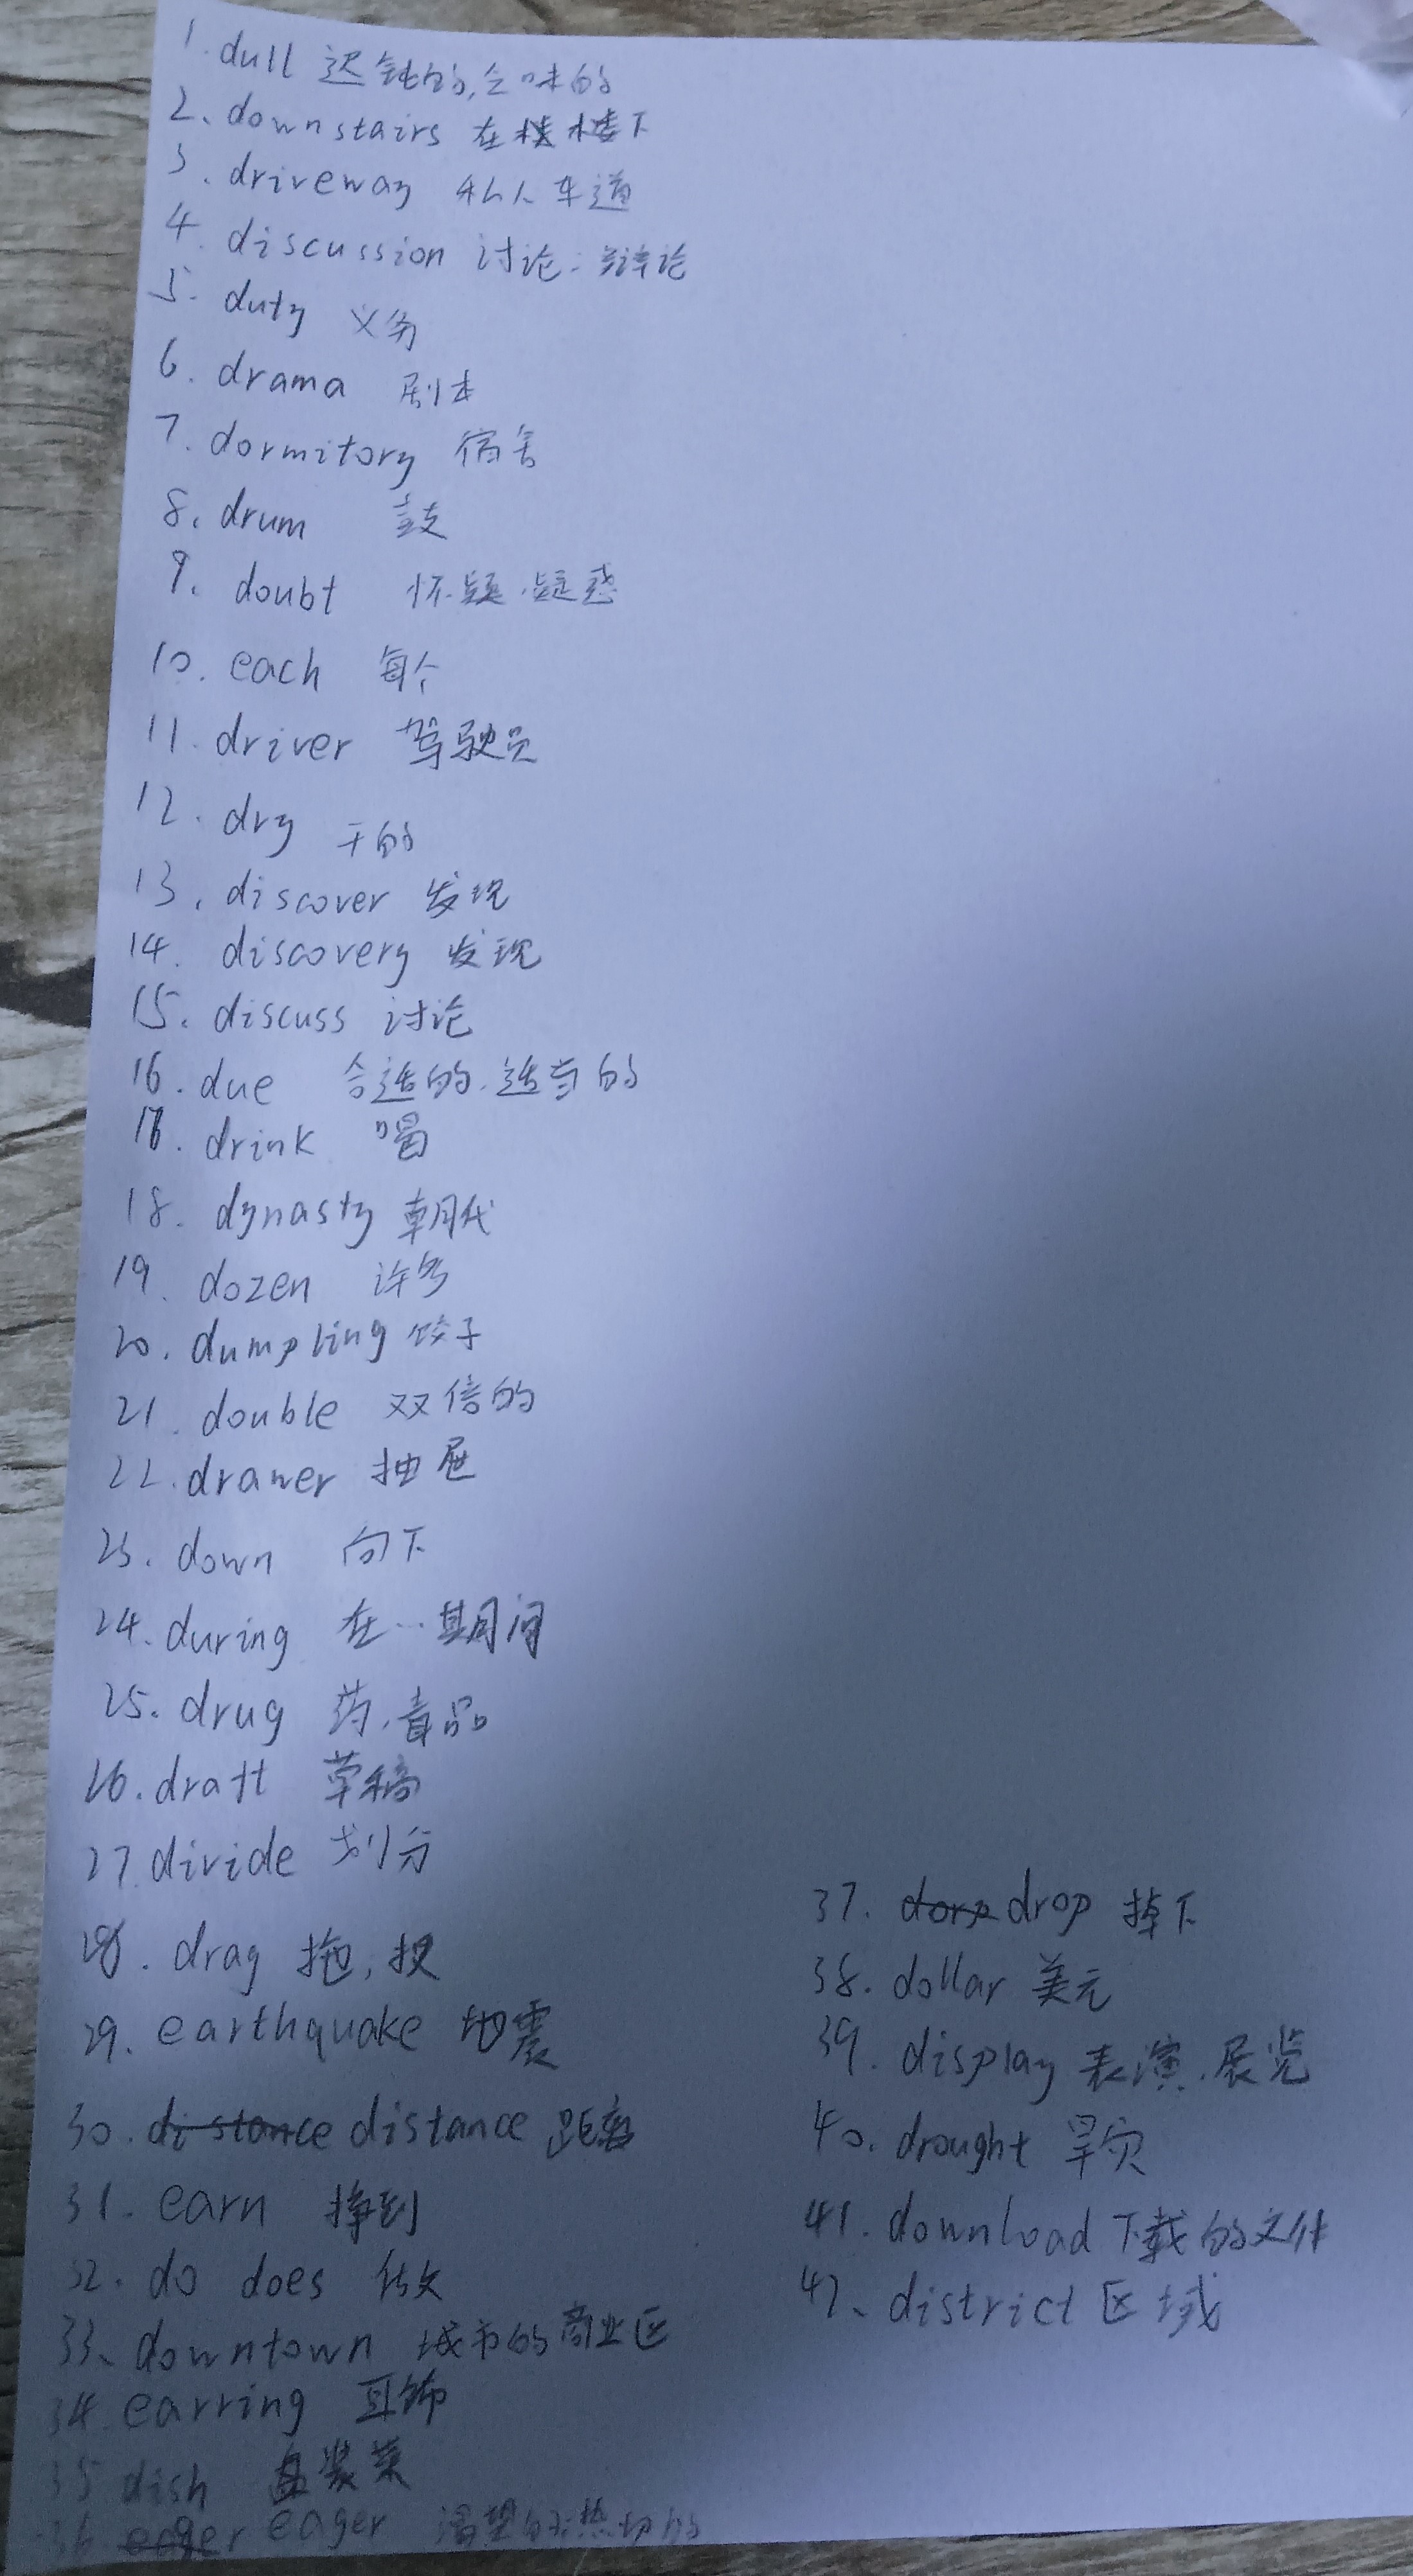 1. dull 迟钝的,乏味的
2、downstairs 在楼下
3、driveway 私人车道
4. discussion 讨论;辩论
5. duty 义务
6. drama 剧本
7. dormitory 宿舍
8. drum 鼓
9. doubt 怀疑,疑惑
10. each 每个
11. driver 驾驶员
12. dry 干的
13. discover 发现
14. discovery 发现
15. discuss 讨论
16. due 合适的.适当的
17. drink 喝
18. dynasty 朝代
19. dozen 许多
20. dumpling 饺子
21. double 双倍的
22. drawer 抽屉
23. down 向下
24. during 在…期间
25. drug 药,毒品
26. draft 草稿
27 divide 划分
28. drag 拖,拽
29. earthquake 地震
30. distance distance 距离
31. earn 挣到
32. do does 做
33、downtown 城市的商业区
34 earring 耳饰
35 dish 盘装菜
36 eager eager 渴望的;热切的
37. dorp drop 掉下
38. dollar 美元
39. display 表演.展览
40. drought 旱灾
41. download 下载的文件
42、district 区域